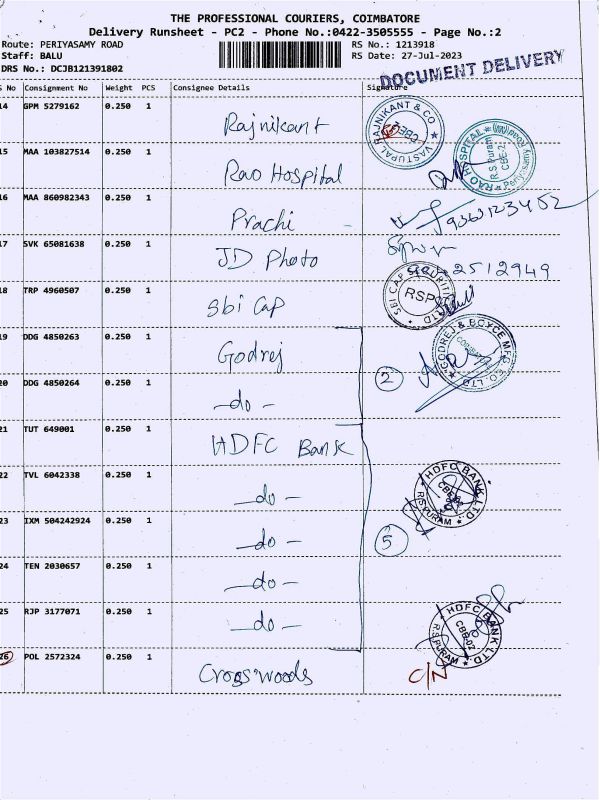 THE PROFESSIONAL COURIERS, COIMBATORE
Delivery Runsheet - PC2 - Phone No.:0422-3505555 - Page No.:2
Route: PERIYASAMY ROAD
Staff: BALU
DRS No.: DCJB121391802
RS No.: 1213918
RS Date: 27-Jul-2023
DOCUMENT DELIVERY
S No Consignment No Weight PCS Consignee Details Signature
14 GPM 5279162 0.250 1 Rajnikant
VASTUPAL RAJNIKANT & CO CBE-2
15 MAA 103827514 0.250 1 Rao Hospital
RAO HOSPITAL R S Puram CBE-2 Periyasamy Road
16 MAA 860982343 0.250 1 Prachi
9360123452
17 SVK 65081638 0.250 1 JD Photo
2512949
18 TRP 4960507 0.250 1 Sbi Cap
SBI CAP SECURITIES LTD RSP
19 DDG 4850263 0.250 1 Godrej
GODREJ & BOYCE MFG CO. LTD.
20 DDG 4850264 0.250 1 -do-
2
21 TUT 649001 0.250 1 HDFC Bank
22 TVL 6042338 0.250 1 -do-
HDFC BANK LTD. R.S. PURAM
23 IXM 504242924 0.250 1 -do-
5
24 TEN 2030657 0.250 1 -do-
25 RJP 3177071 0.250 1 -do-
HDFC BANK LTD. R.S. PURAM CBE-02
26 POL 2572324 0.250 1 Crosswoods
C/N